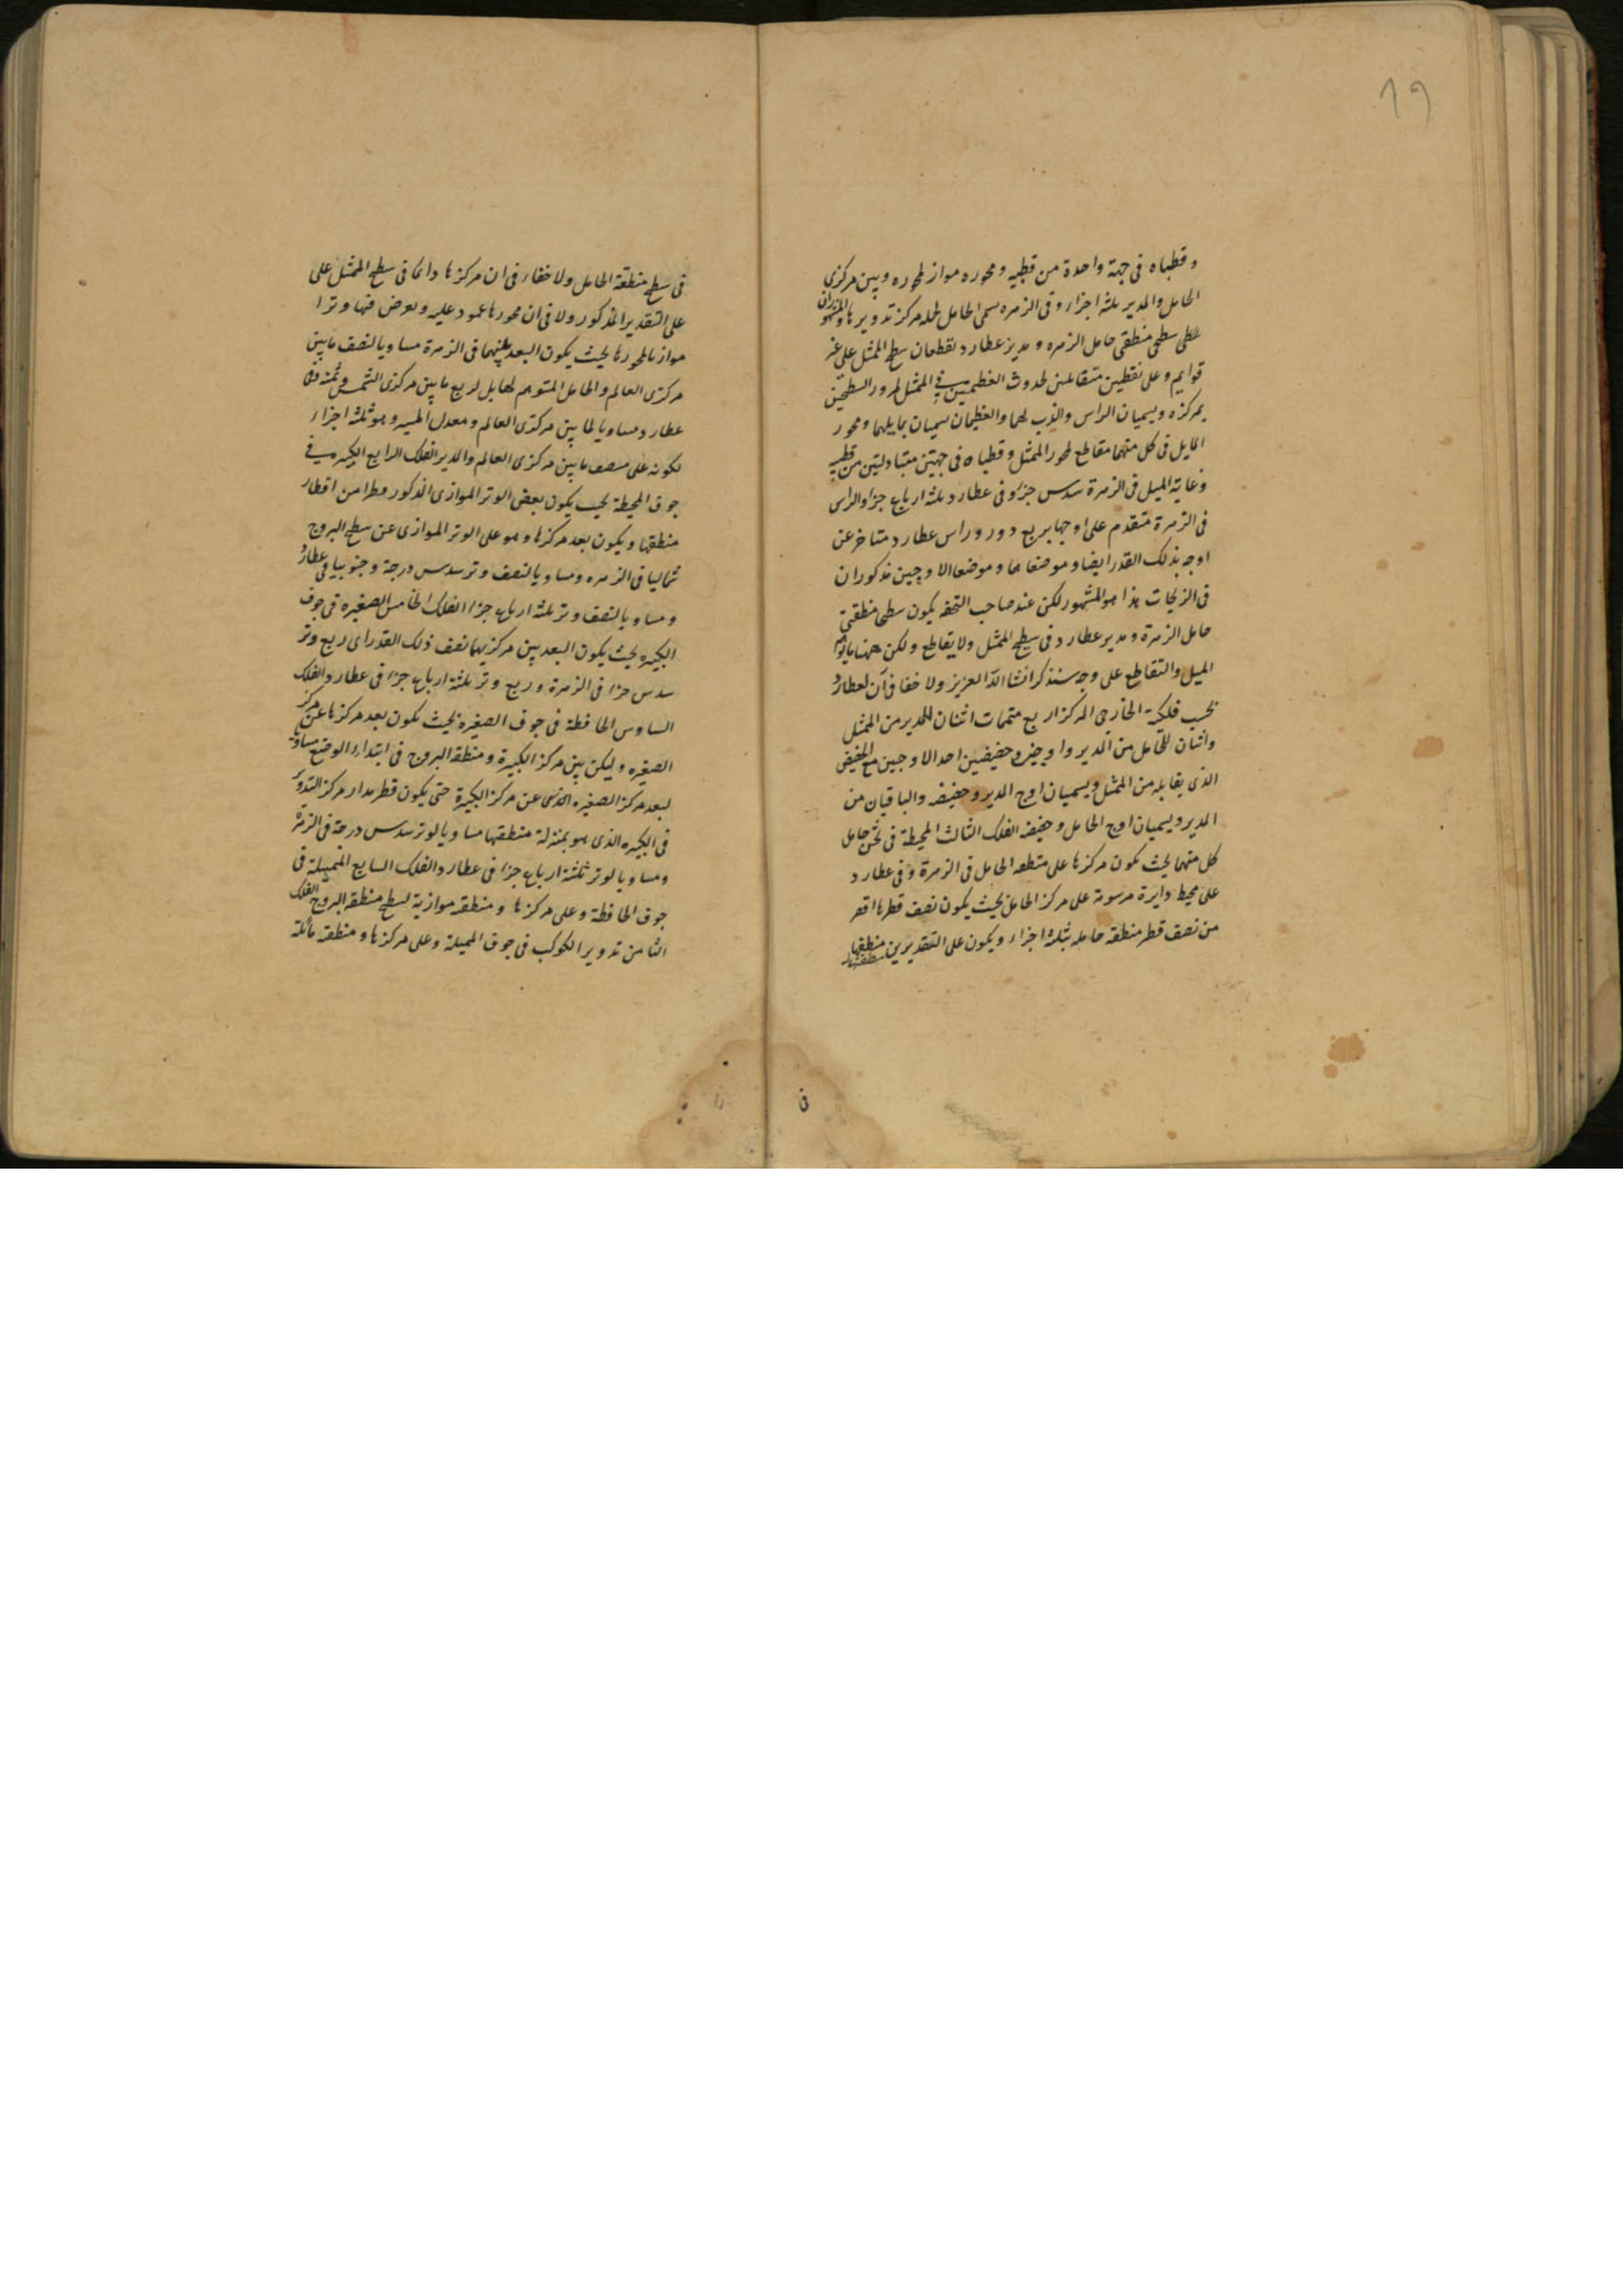 ١٩
وقطباه فى جهة واحدة من قطبيه ومحوره مواز لمحوره وبين مركزى
الحامل والمدير ثلثة اجزاء وفى الزهره يسمى الحامل لحمله مركز تدويرها والمشهور ان
سطحى منطقتى حامل الزهره ومدير عطارد يقطعان سطح الممثل على غير
قوايم وعلى نقطتين متقابلتين لحدوث العظيمتين فى الممثل لمرور السطحين
بمركزه ويسميان الراس والذنب لهما والعظيمتان يسميان بمايلهما ومحور
المايل فى كل منهما مقاطع لمحور الممثل وقطباه فى جهتين متبادلتين من قطبيه
وغاية الميل فى الزهرة سدس جزء وفى عطارد ثلثة ارباع جزء والراس
فى الزهرة متقدم على اوجها بربع دور وراس عطارد متاخر عن
اوجه بذلك القدر ايضا وموضعاهما وموضعا الاوجين مذكوران
فى الزيجات هذا هو المشهور لكن عند صاحب التحفه يكون سطحى منطقتى
حامل الزهرة ومدير عطارد فى سطح الممثل ولا تقاطع ولكن ههنا ما يوهم
الميل والتقاطع على وجه سنذكر انشا الله العزيز ولا خفا فى ان لعطارد
بحسب فلكيه الخارجى المركز اربع متممات اثنتان للمدير من الممثل
واثنتان للحامل من المدير واوجين وحضيضين احد الاوجين مع الحضيض
الذى يقابله من الممثل ويسميان اوج المدير وحضيضه والباقيان من
المدير ويسميان اوج الحامل وحضيضه الفلك الثالث المحيطة فى ثخن حامل
كل منهما بحيث يكون مركزها على منطقه الحامل فى الزهرة وفى عطارد
على محيط دايرة مرسومة على مركز الحامل بحيث يكون نصف قطرها اقصر
من نصف قطر منطقه حامله بثلثة اجزاء ويكون على التقديرين منطقتها
فى سطح منطقة الحامل ولا خفاء فى ان مركزها دائما فى سطح الممثل على
على التقدير المذكور ولا فى ان محورها عمود عليه ويعرض فيها وترا
موازيا لمحورها بحيث يكون البعد بينهما فى الزهرة مساويا لنصف ما بين
مركزى العالم والحامل المتوهم المقابل لربع ما بين مركزى الشمس وثمنه وفى
عطارد مساويا لما بين مركزى العالم ومعدل المسير وهو ثلثة اجزاء
لكونه على منصف ما بين مركزى العالم والمدير الفلك الرابع الكبيره فى
جوف المحيطة بحيث يكون بعض الوتر الموازى المذكور قطرا من اقطار
منطقتها ويكون بعد مركزها وهو على الوتر الموازى عن سطح البروج
شماليا فى الزهره ومساويا لنصف وتر سدس درجة وجنوبيا فى عطارد
ومساويا لنصف وتر ثلثة ارباع جزء الفلك الخامس الصغيره فى جوف
الكبيره بحيث يكون البعد بين مركزيهما نصف ذلك القدر اى ربع وتر
سدس جزء فى الزهرة وربع وتر ثلثة ارباع جزء فى عطارد الفلك
السادس الحافظة فى جوف الصغيرة بحيث يكون بعد مركزها عن مركز
الصغيره وليكن بين مركز الكبيرة ومنطقة البروج فى ابتداء الوضع مساويا
لبعد مركز الصغيره عن مركز الكبيرة حتى يكون قطر مدار مركز التدوير
فى الكبيره الذى هو بمنزلة منطقتها مساويا لوتر سدس درجة فى الزهرة
ومساويا لوتر ثلثة ارباع جزء فى عطارد الفلك السابع المميلة فى
جوف الحافظة وعلى مركزها ومنطقه موازية لسطح منطقة البروج الفلك
الثامن تدوير الكوكب فى جوف المميلة وعلى مركزها ومنطقه مائلة